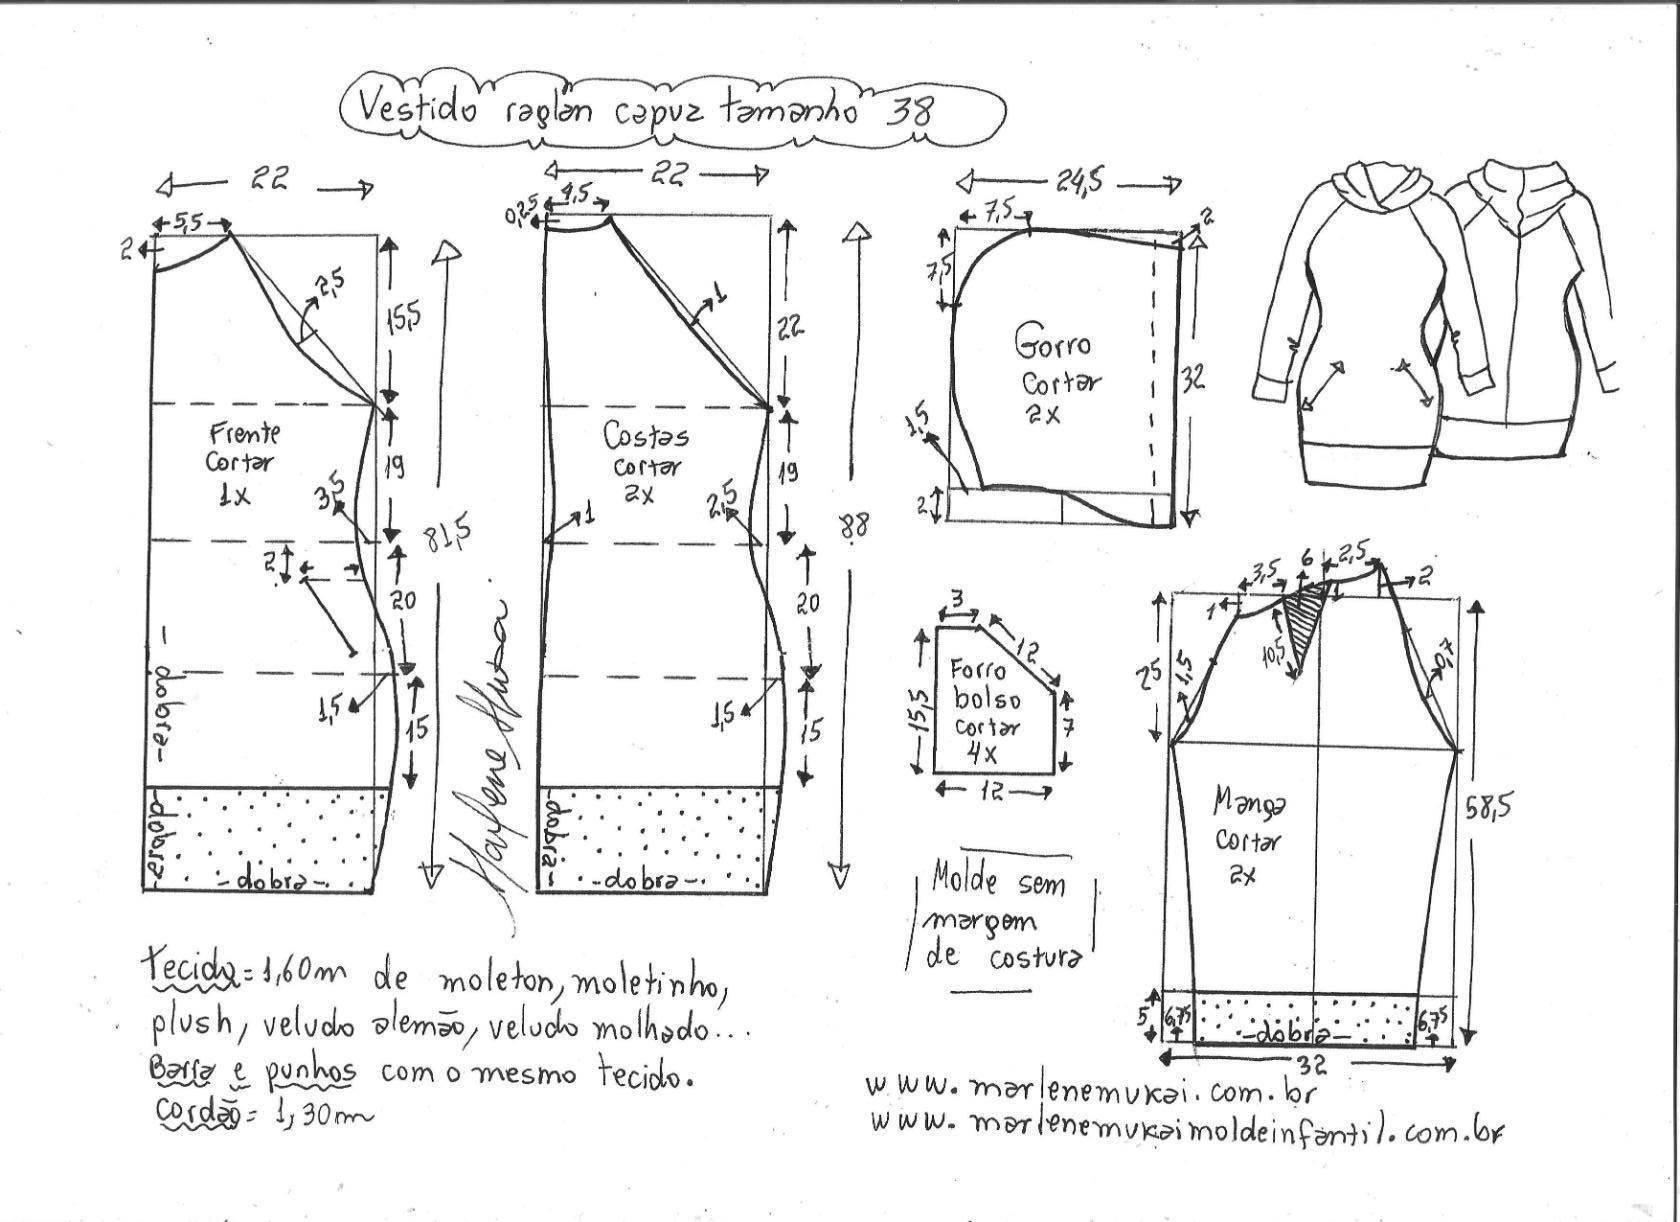 Vestido raglan capuz tamanho 38
22
5,5
2
2,5
15,5
Frente
Cortar
1x
19
3,5
81,5
2
20
1,5
15
-dobra-
-dobra-
-dobra-
22
4,5
0,25
1
22
Costas
cortar
2x
19
1
2,5
88
20
1,5
15
-dobra-
-dobra-
24,5
7,5
2
7,5
Gorro
cortar
2x
32
1,5
2
3
12
Forro
bolso
cortar
4x
15,5
7
12
3,5
6
2,5
1
1
2
25
1,5
10,5
0,7
Manga
cortar
2x
58,5
5
6,75
-dobra-
6,75
32
Molde sem
margem
de costura
Tecido=1,60m de moleton, moletinho,
plush, veludo alemão, veludo molhado...
Barra e punhos com o mesmo tecido.
Cordão= 1,30m
www.marlenemukai.com.br
www.marlenemukaimoldeinfantil.com.br